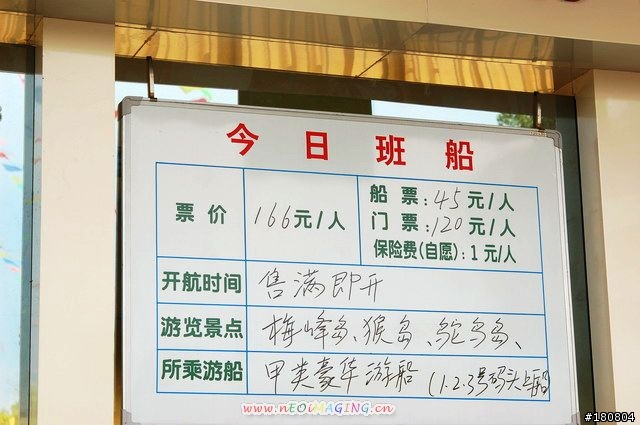 今日班船
票价 166元/人 船票:45元/人
门票:120元/人
保险费(自愿):1元/人
开航时间 售满即开
游览景点 梅峰岛、猴岛、鸵鸟岛、
所乘游船 甲类豪华游船 (1.2.3号码头上船)
www.nEOiMAGING.cn
#180804